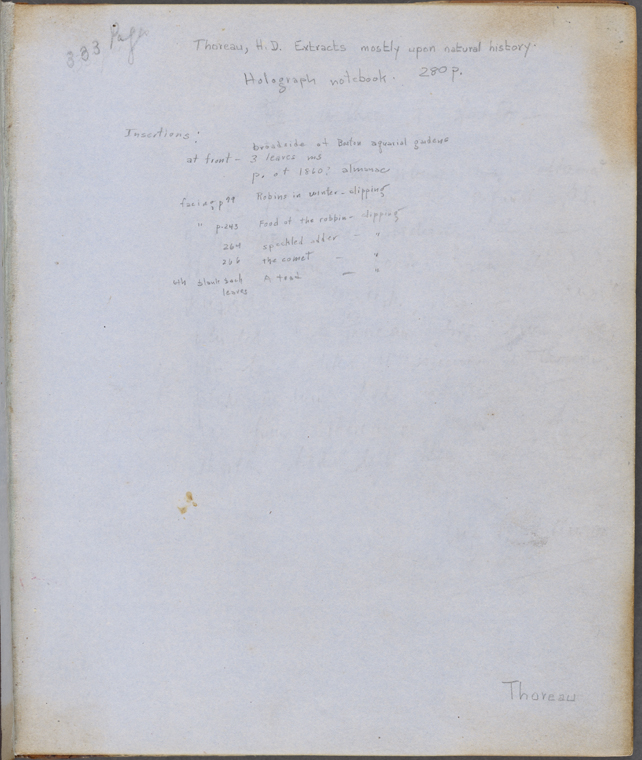 383 Page
Thoreau, H.D. Extracts mostly upon natural history.
Holograph notebook. 280 p.
Insertions:
brookside at aquarial gardens
at front - 3 leaves ms
p. of 1860 almanac
facing p 99 Robins in winter - clipping
" p. 243 Food of the robbin - clipping
264 speckled adder - "
266 the comet - "
blank back A toad - "
leaves
Thoreau